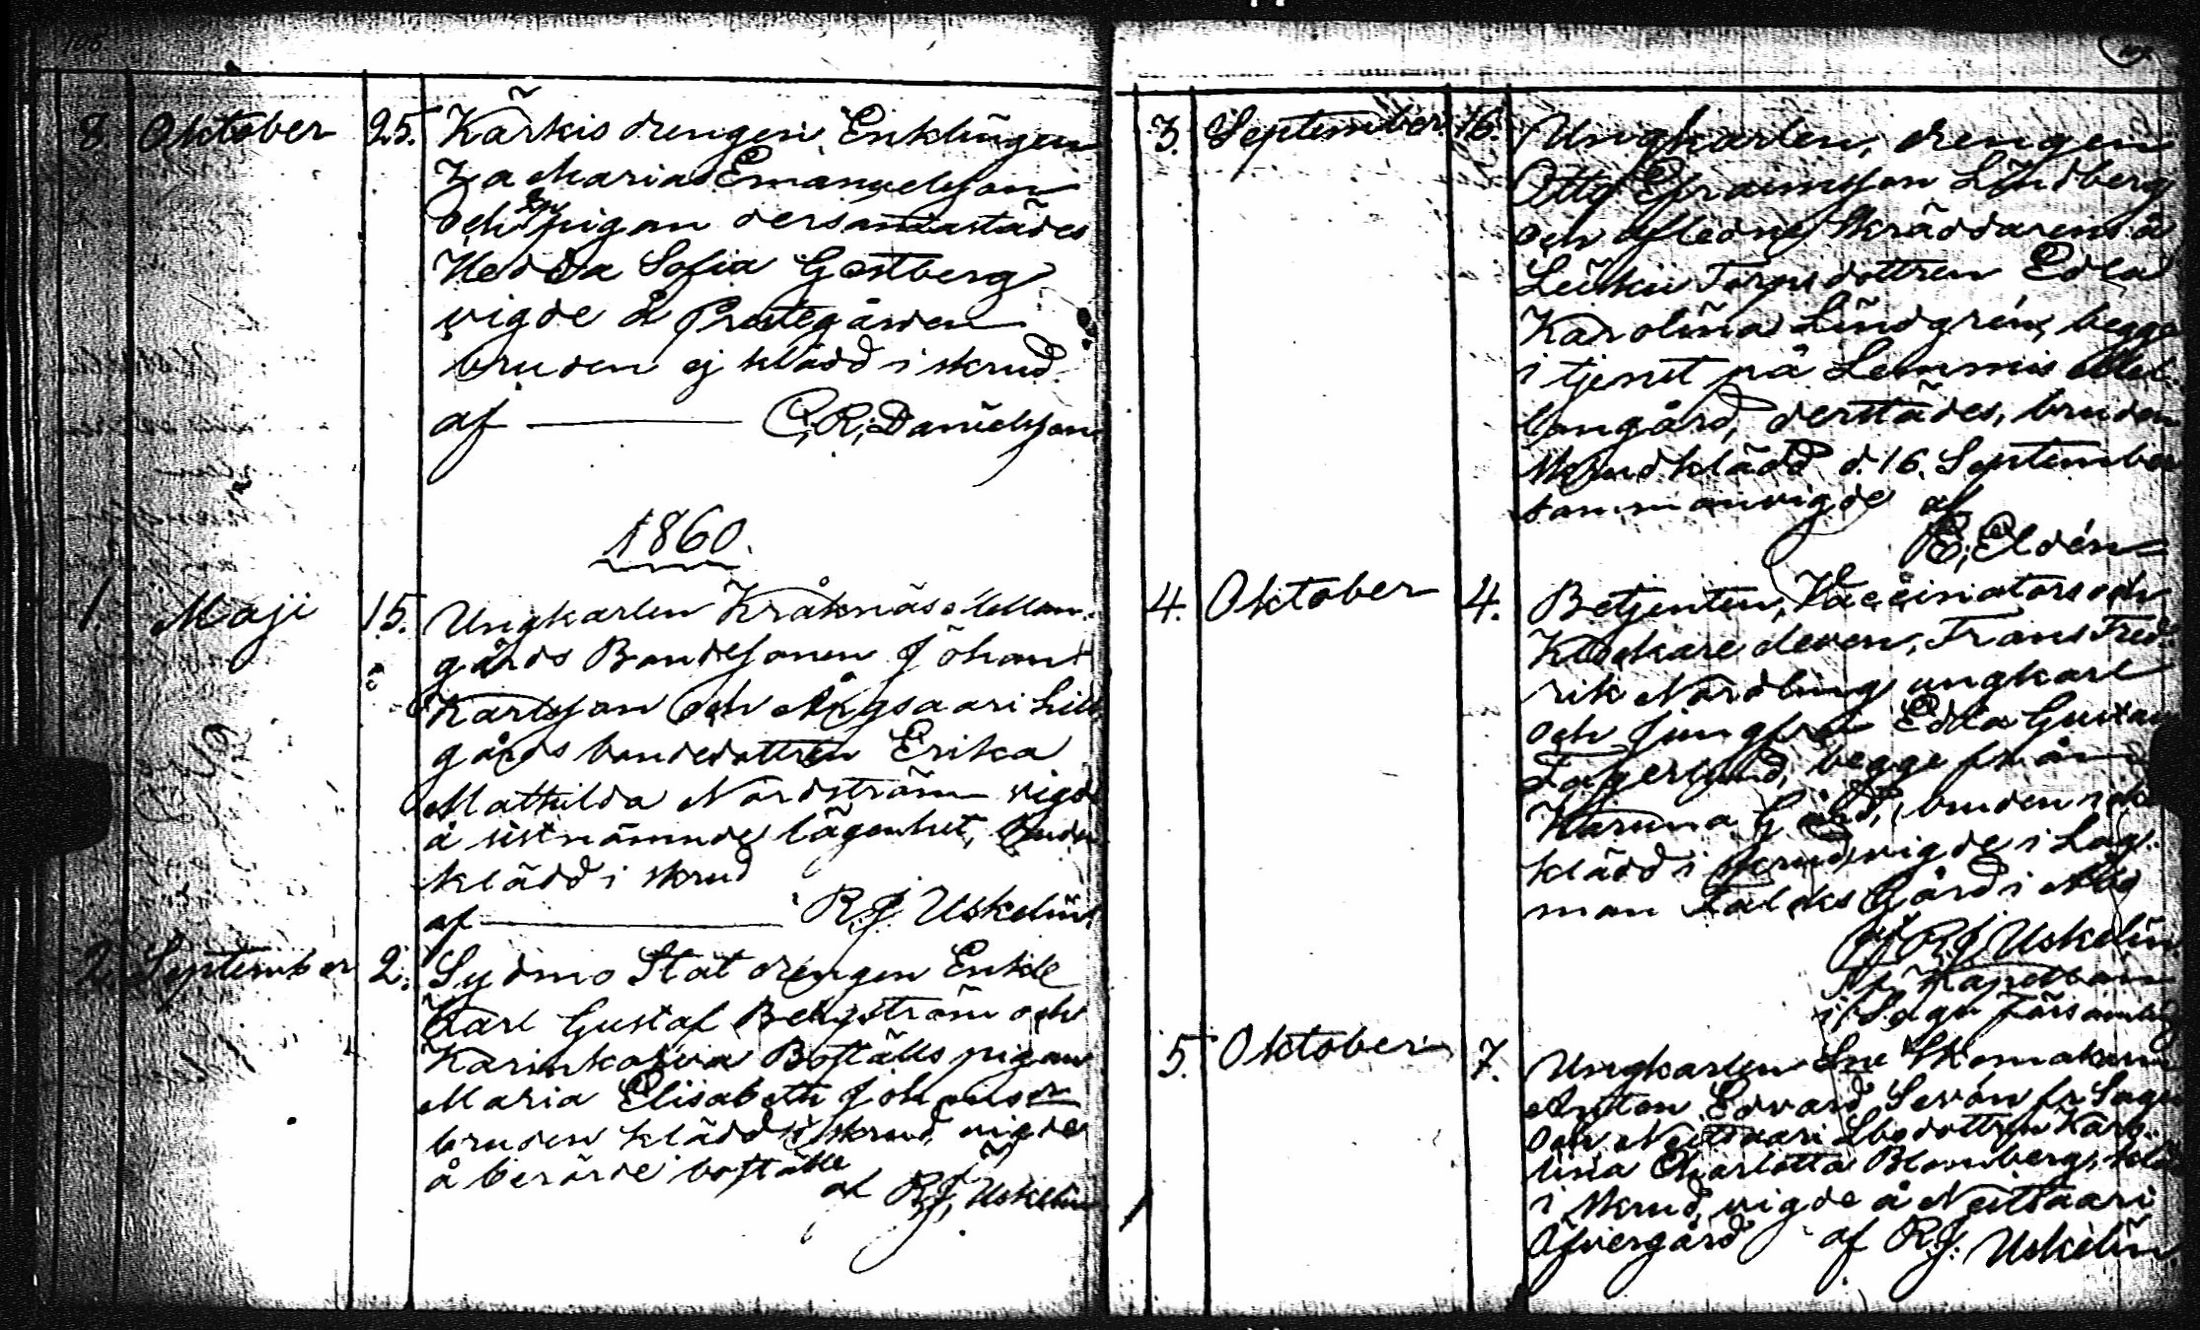 106
8 Oktober 25. Kärkis drengen Enklingen
Zacharias Emanuelsson
och pigan dersammastädes
Hedda Sofia Gestberg
vigde å Prestegården
bruden ej klädd i skrud
af C. R. Danielsson
1860.
1. Maji 15. Ungkarlen Kråknäs Mellan-
gårds Bondesonen Johan
Karlsson och Ängsaari Lill
gårds bondedottren Erika
Mathilda Nordström vigde
å sistnämnde lägenhet, Bruden
klädd i skrud
af R. J. Uskelin
2. September 2. Sydmo Stat drengen Enkl
Karl Gustaf Bergström och
Karinkoski Boställs pigan
Maria Elisabeth Johansdr
bruden klädd i skrud, vigde
å berörde boställe
af R. J. Uskelin
3. September 16. Ungkarlen, drengen
Otto Efraimsson Lindberg
och afledne Skräddarens å
Torpsdottren Edla
Karolina Lindgrén, begge
i tjenst på Lemmis Mel-
langård, derstädes, bruden
skrudklädd d. 16. September
sammanvigde af
E. Eldén
4. Oktober 4. Betjenten, Vaccinators och
Klockare eleven, Frans Fred-
rik Nordling ungkarl
och jungfru Edla Gustava
Fagerlund, begge från
Karuna Gård, bruden icke
klädd i skrud, vigde i Lag-
man Falcks Gård i Åbo
af R. J. Uskelin
Kapellan
i Sagu Församling
5. Oktober 7. Ungkarlen Sne Skomakaren
Anton Edvard Sevón fr Sagu
och Neitsaari Lbodottren Karo-
lina Charlotta Blomberg, klädd
i skrud, vigde å Neitsaari
Öfvergård af R. J. Uskelin.